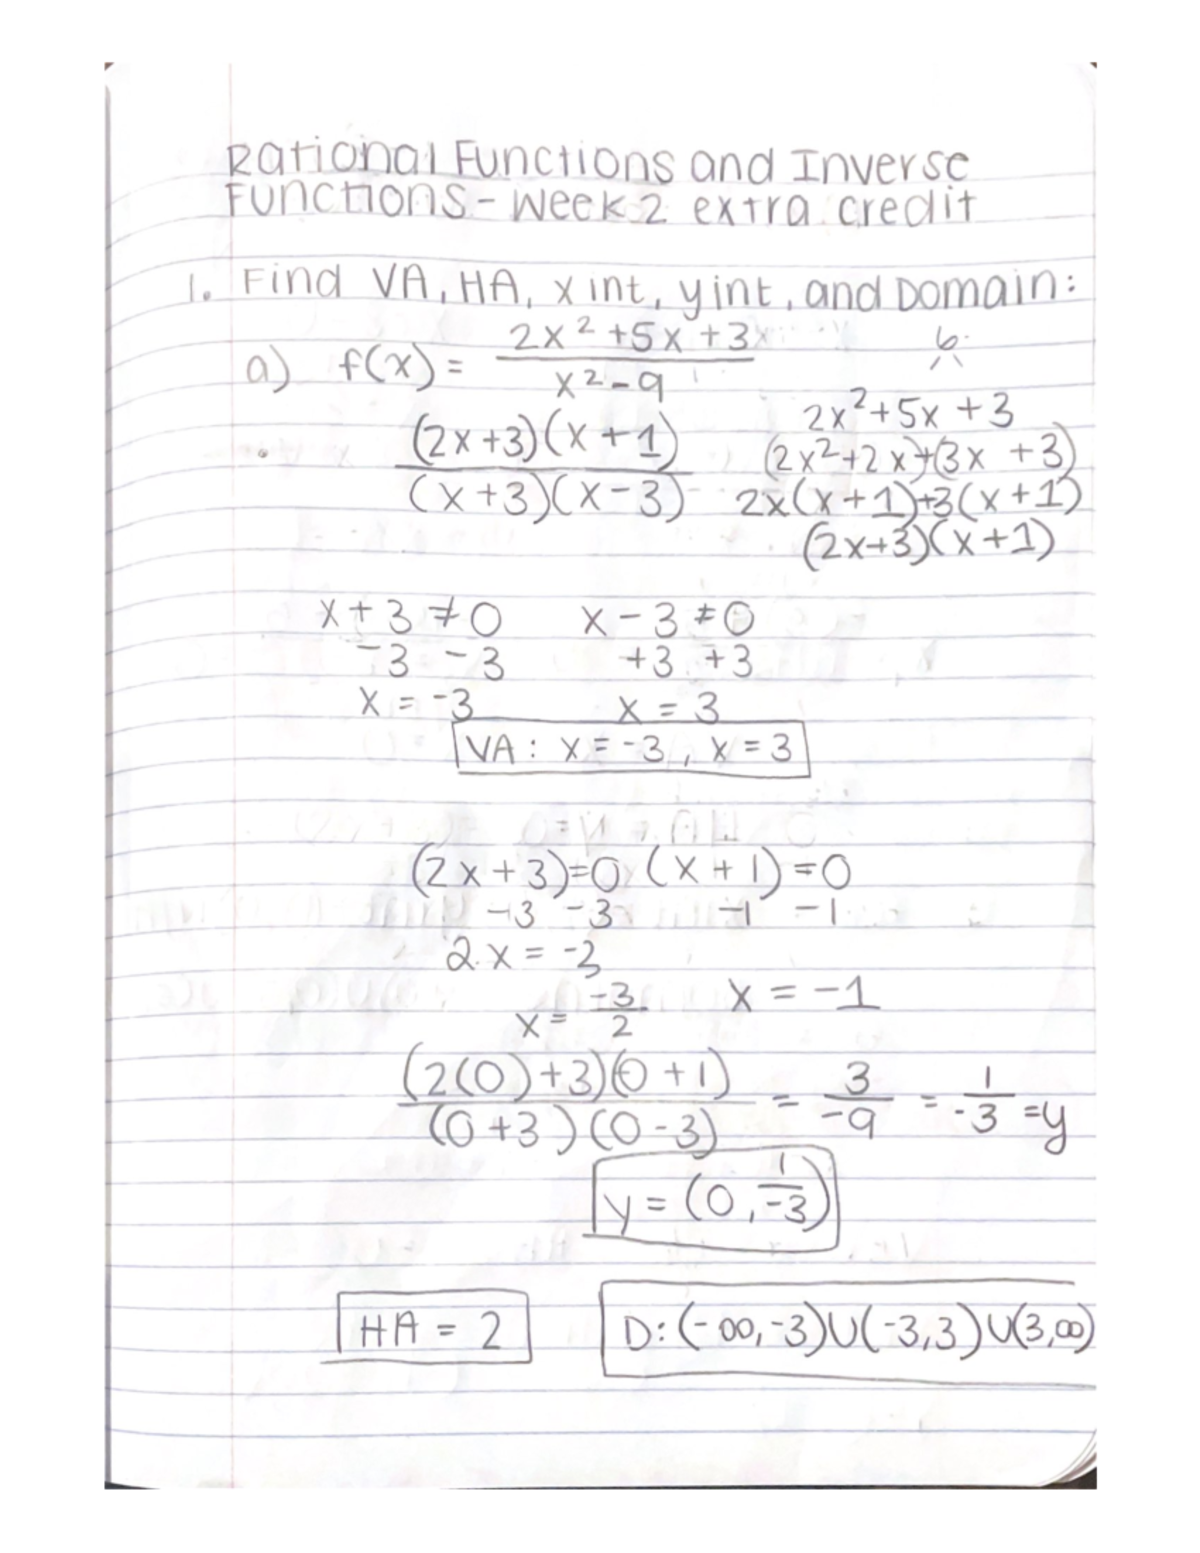 Rational Functions and Inverse
Functions - Week 2 extra credit
1. Find VA, HA, x int, y int, and Domain:
a) f(x) = (2x² + 5x + 3)/(x² - 9)
6
2x² + 5x + 3
(2x + 3)(x + 1)/(x + 3)(x - 3)
(2x² + 2x) + (3x + 3)
2x(x + 1) + 3(x + 1)
(2x + 3)(x + 1)
x + 3 ≠ 0   x - 3 ≠ 0
-3 -3   +3 +3
x = -3   x = 3
VA: x = -3, x = 3
(2x + 3) = 0   (x + 1) = 0
-3 -3   -1 -1
2x = -3
x = -3/2   x = -1
(2(0) + 3)(0 + 1)/(0 + 3)(0 - 3) = 3/-9 = 1/-3 = y
y = (0, 1/-3)
HA = 2   D: (-∞, -3) ∪ (-3, 3) ∪ (3, ∞)